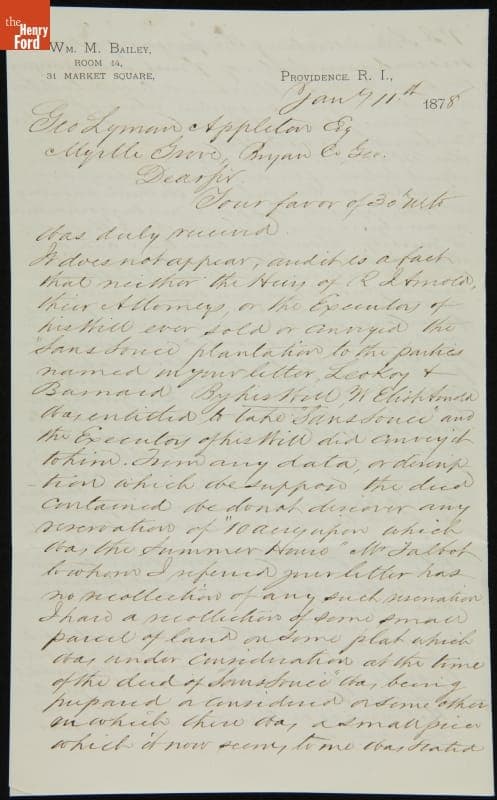 the
Henry
Ford
WM. M. BAILEY,
ROOM 14,
31 MARKET SQUARE,
PROVIDENCE, R. I.,
Jany 11th 1878
Geo Lyman Appleton Esq
Myrtle Grove, Bryan Co Geo.
Dear Sir
Your favor of 30th ulto
was duly received
It does not appear, and it is a fact
that neither the Heirs of R. J. Arnold,
their Attorneys, or the Executors of
his Will ever sold or conveyed the
"Sans Souci" plantation to the parties
named in your letter, LeRoy &
Barnard By his Will, W Eliot Arnold
was entitled to take "Sans Souci" and
the Executors of his Will did convey it
to him. From any data, or descrip
tion which we suppose the deed
contained we do not discover any
reservation of "10 acres upon which
was the Summer House" Mr Talbot
to whom I referred your letter has
no recollection of any such reservation
I have a recollection of some small
parcel of land on some plat which
was under consideration at the time
of the deed of Sans Souci was being
prepared a considered or some other
in which there was a small piece
which it now seems to me was stated